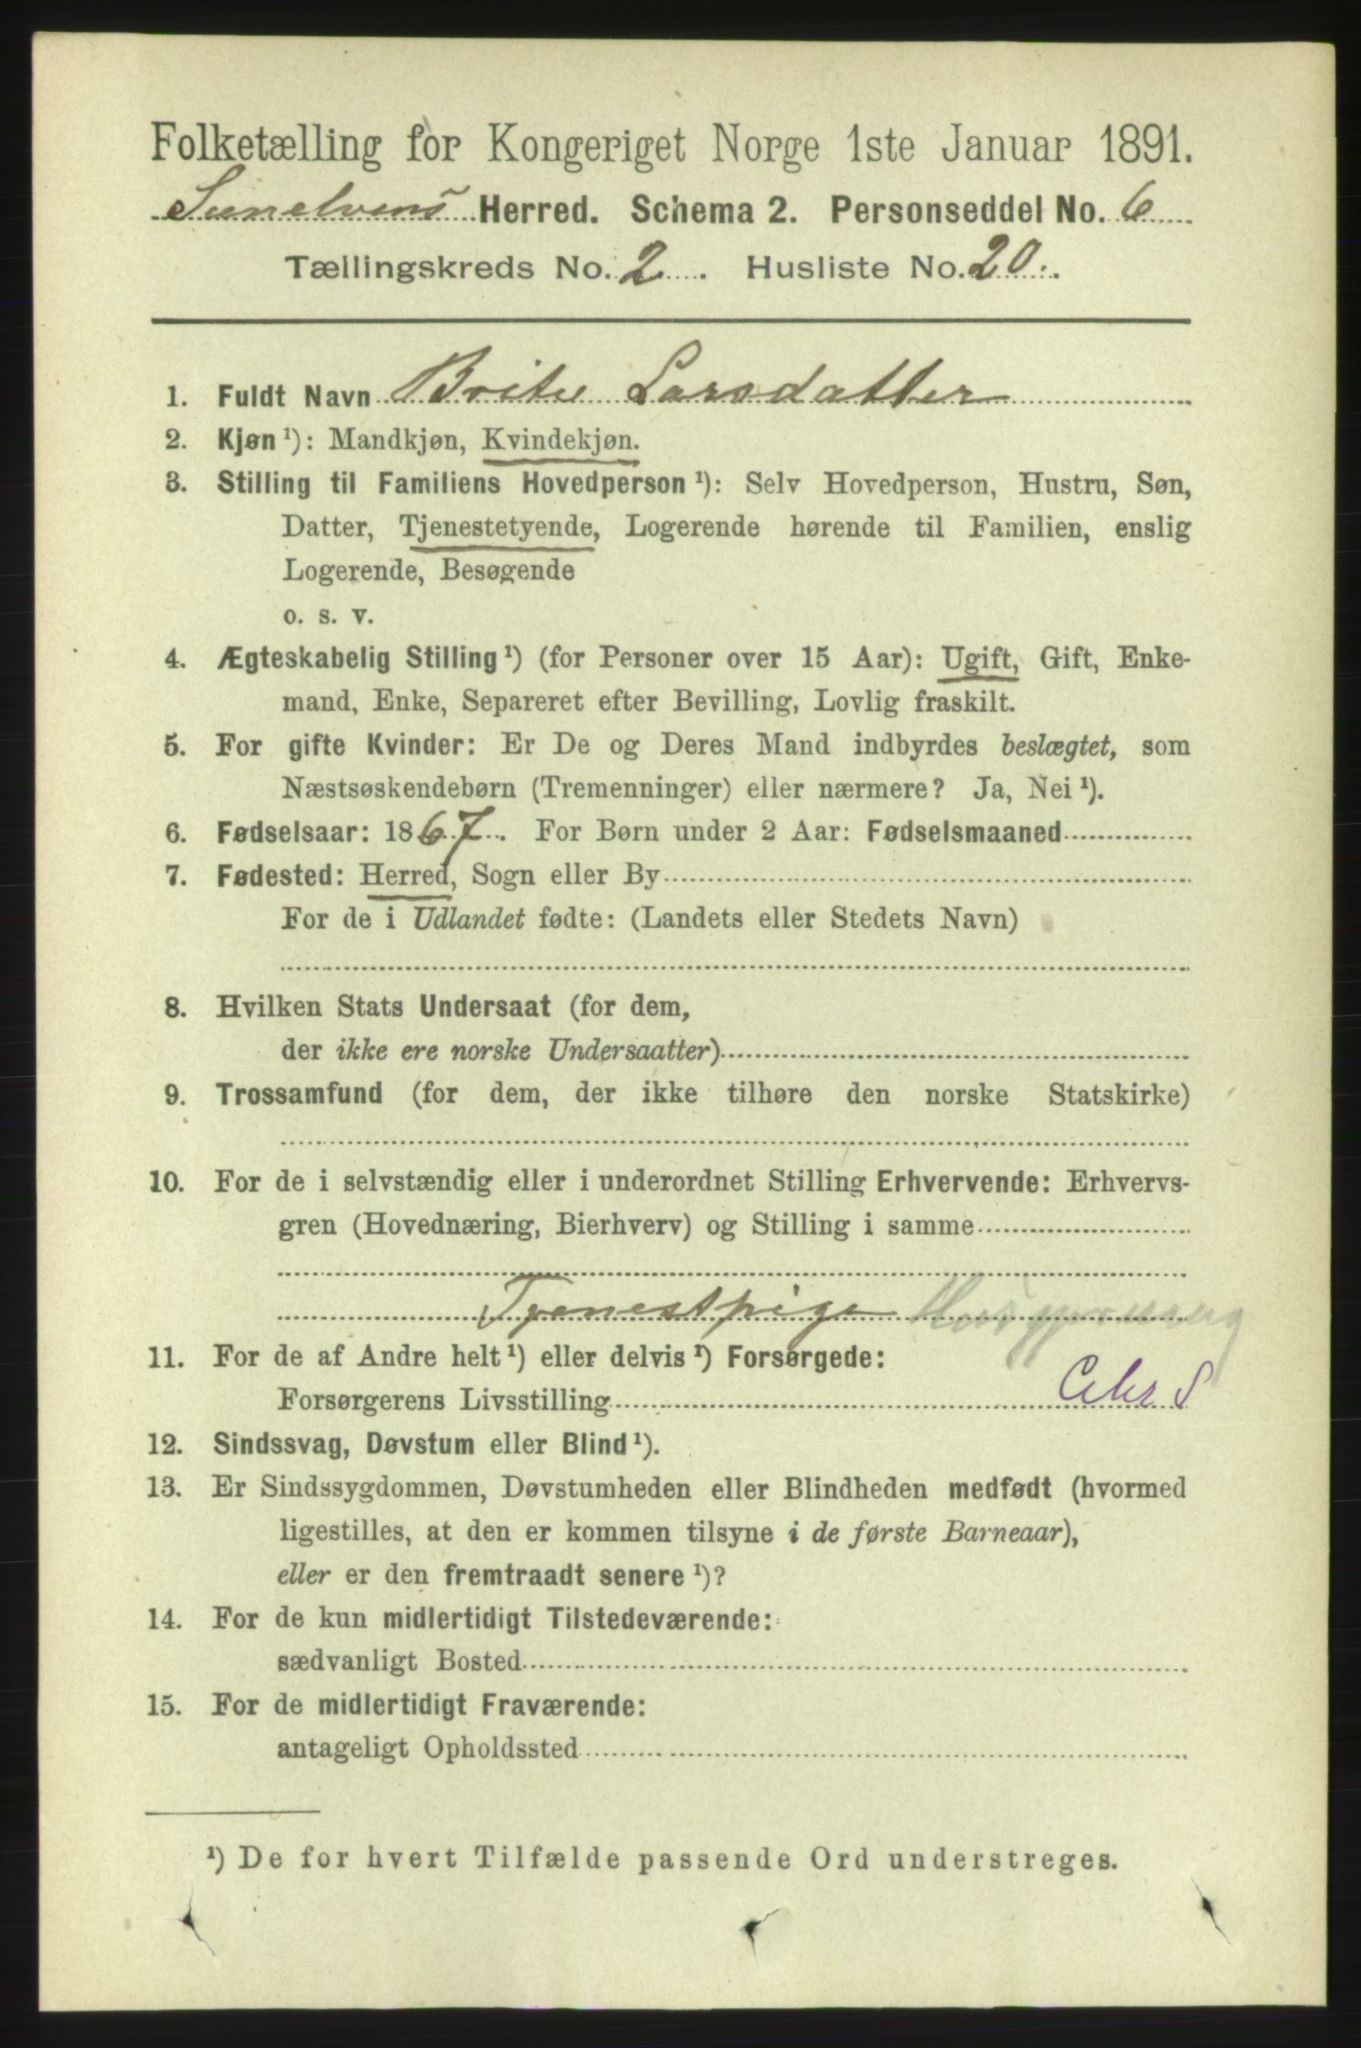 Folketælling for Kongeriget Norge 1ste Januar 1891.
Sunelvens Herred. Schema 2. Personseddel No. 6
Tællingskreds No. 2. Husliste No. 20.
1. Fuldt Navn Brite Larsdatter
2. Kjøn ¹): Mandkjøn, Kvindekjøn.
3. Stilling til Familiens Hovedperson ¹): Selv Hovedperson, Hustru, Søn,
Datter, Tjenestetyende, Logerende hørende til Familien, enslig
Logerende, Besøgende
o. s. v.
4. Ægteskabelig Stilling ¹) (for Personer over 15 Aar): Ugift, Gift, Enke-
mand, Enke, Separeret efter Bevilling, Lovlig fraskilt.
5. For gifte Kvinder: Er De og Deres Mand indbyrdes beslægtet, som
Næstsøskendebørn (Tremenninger) eller nærmere? Ja, Nei ¹).
6. Fødselsaar: 1867. For Børn under 2 Aar: Fødselsmaaned
7. Fødested: Herred, Sogn eller By
For de i Udlandet fødte: (Landets eller Stedets Navn)
8. Hvilken Stats Undersaat (for dem,
der ikke ere norske Undersaatter)
9. Trossamfund (for dem, der ikke tilhøre den norske Statskirke)
10. For de i selvstændig eller i underordnet Stilling Erhvervende: Erhvervs-
gren (Hovednæring, Bierhverv) og Stilling i samme
Tjenestpige Husgjerning
11. For de af Andre helt ¹) eller delvis ¹) Forsørgede:
Forsørgerens Livsstilling
12. Sindssvag, Døvstum eller Blind ¹).
13. Er Sindssygdommen, Døvstumheden eller Blindheden medfødt (hvormed
ligestilles, at den er kommen tilsyne i de første Barneaar),
eller er den fremtraadt senere ¹)?
14. For de kun midlertidigt Tilstedeværende:
sædvanligt Bosted
15. For de midlertidigt Fraværende:
antageligt Opholdssted
¹) De for hvert Tilfælde passende Ord understreges.